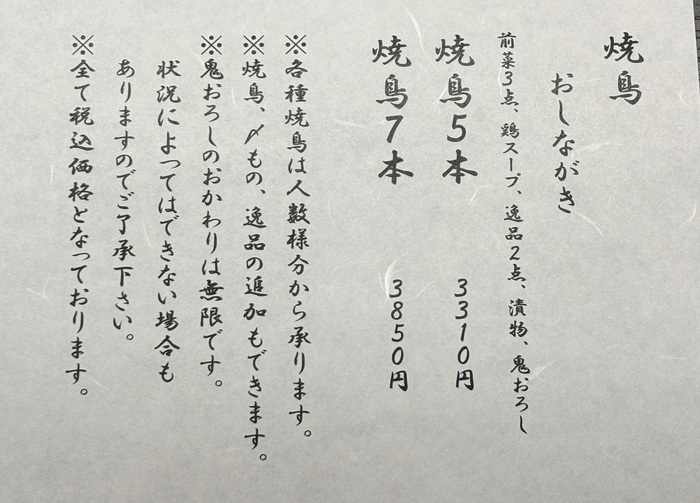 焼鳥
おしながき
前菜3点、鶏スープ、逸品2点、漬物、鬼おろし
焼鳥5本 3310円
焼鳥7本 3850円
※各種焼鳥は人数様分から承ります。
※焼鳥、〆もの、逸品の追加もできます。
※鬼おろしのおかわりは無限です。
状況によってはできない場合も
ありますのでご了承下さい。
※全て税込価格となっております。